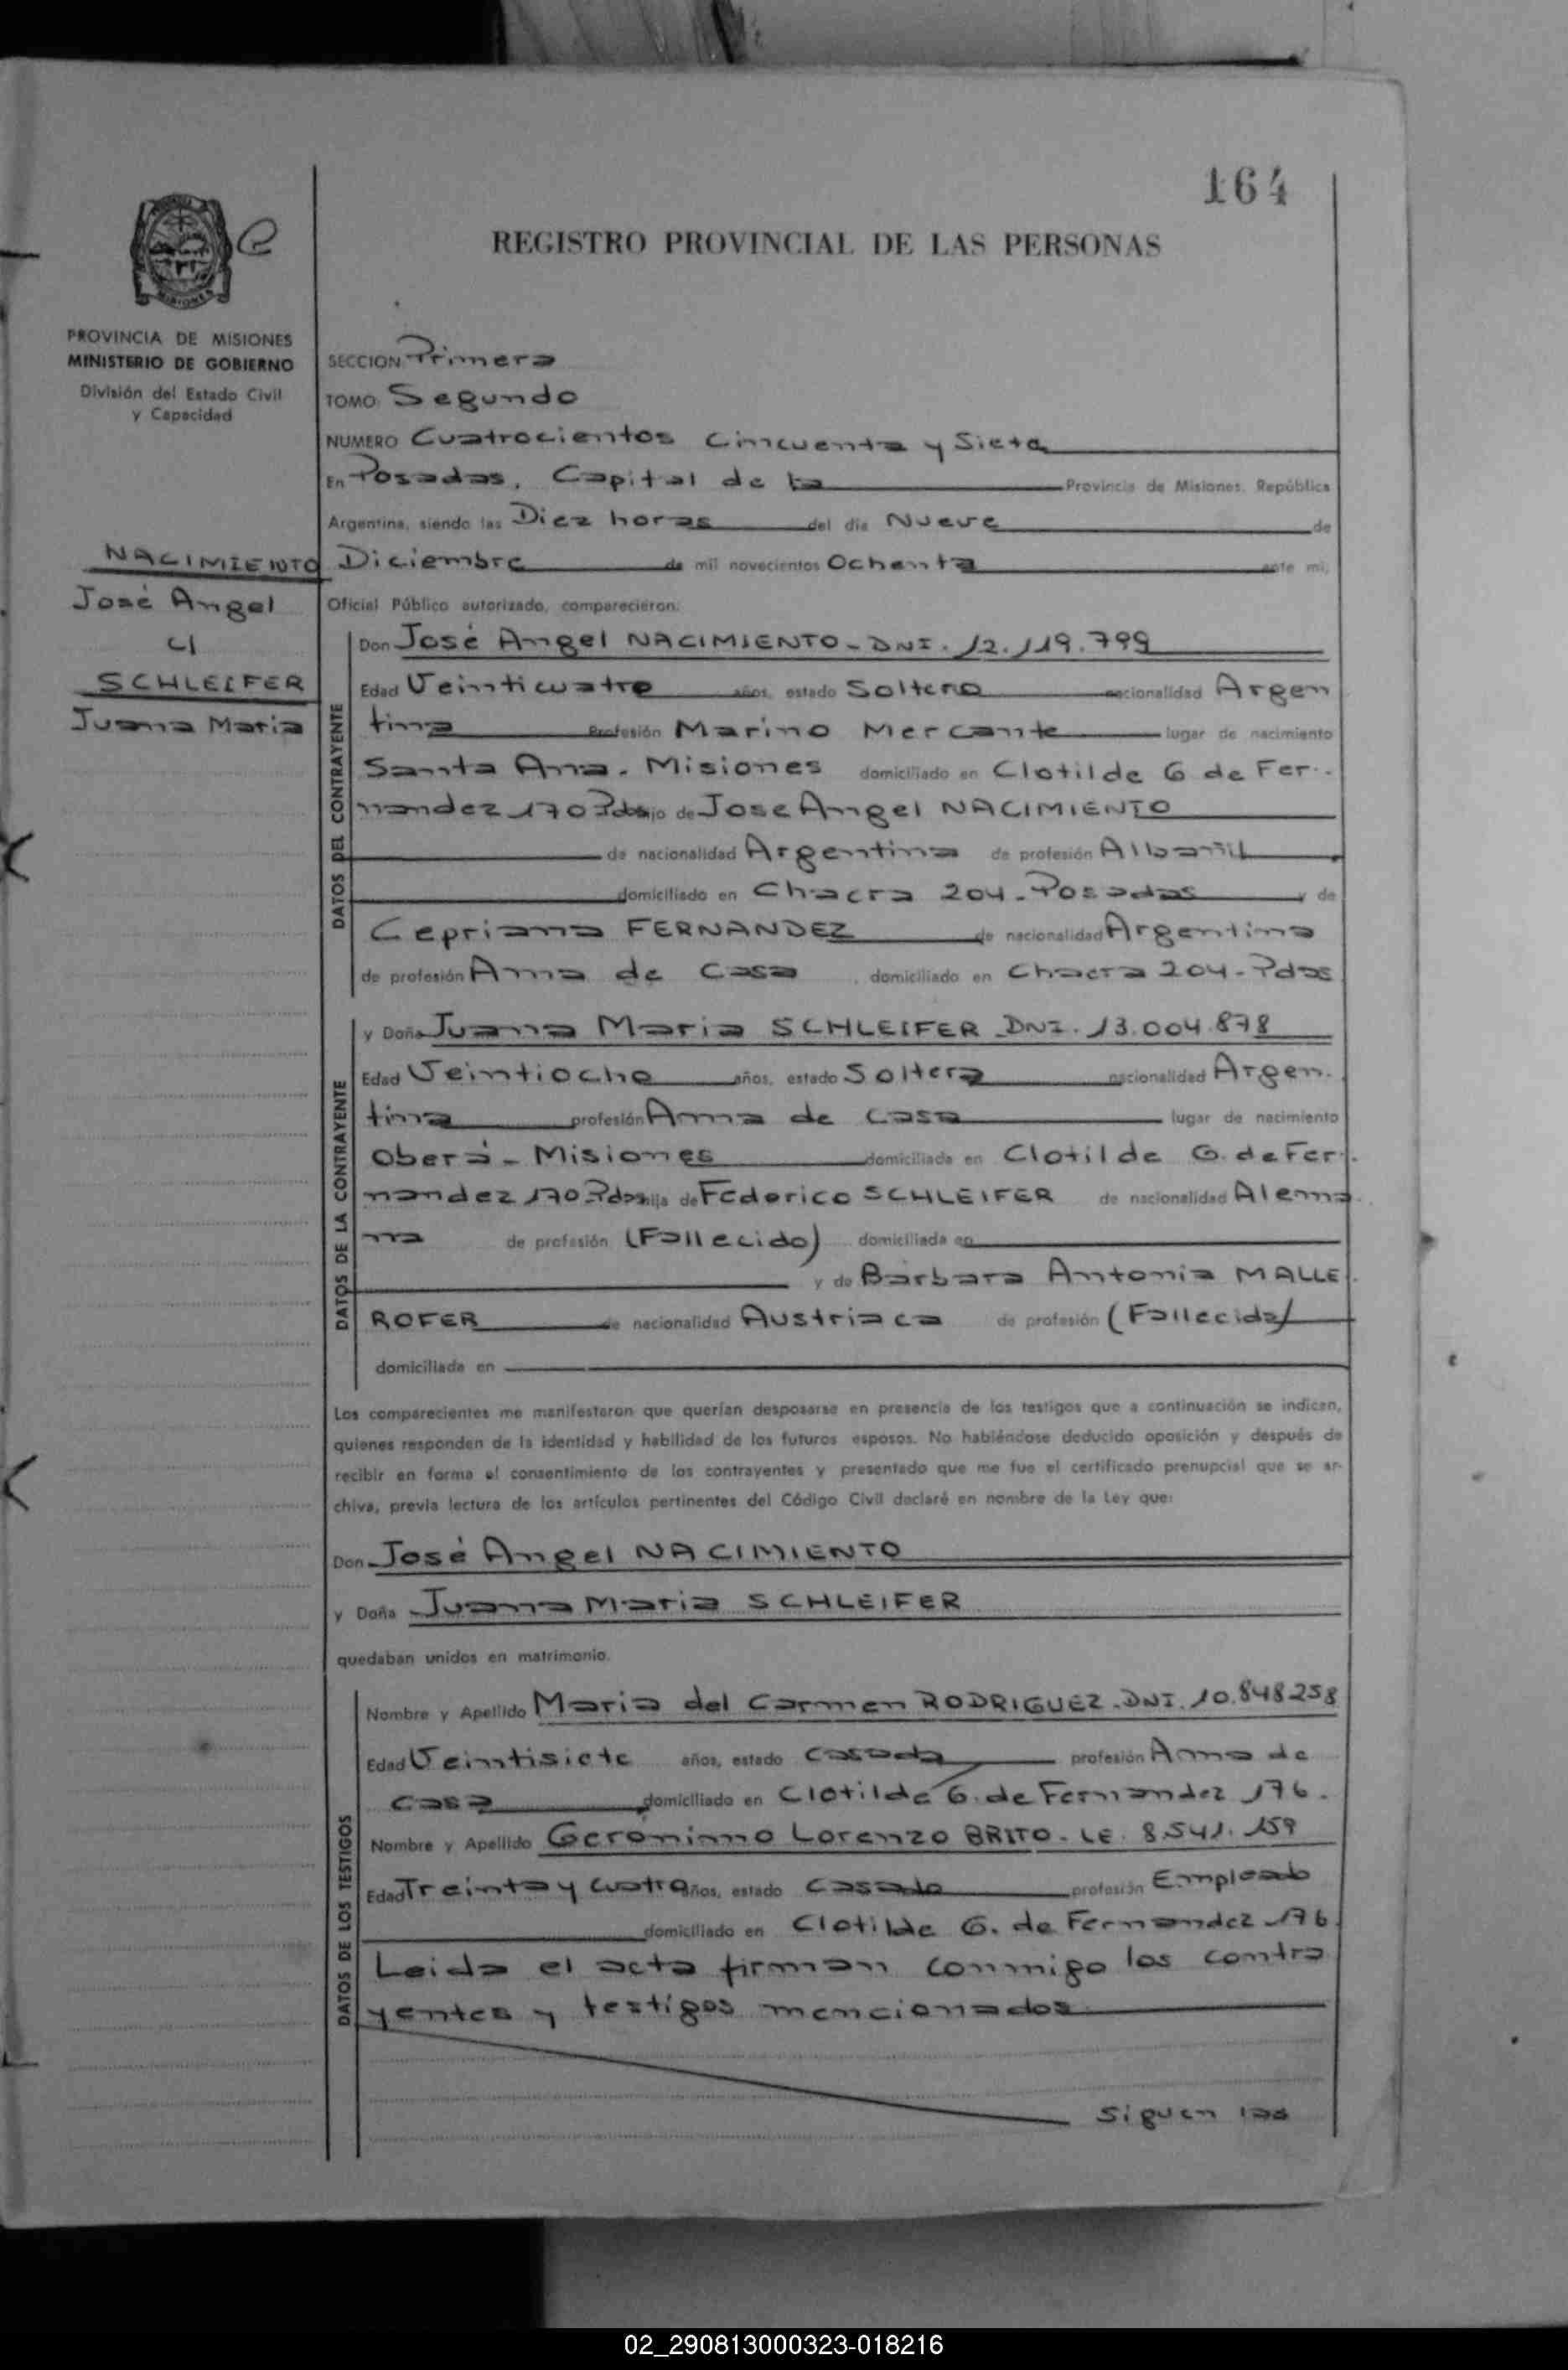 164
REGISTRO PROVINCIAL DE LAS PERSONAS
MISIONES
PROVINCIA DE MISIONES
MINISTERIO DE GOBIERNO
División del Estado Civil
y Capacidad
NACIMIENTO
José Angel
c/
SCHLEIFER
Juana Maria
SECCION Primera
TOMO Segundo
NUMERO Cuatrocientos Cincuenta y Siete
En Posadas, Capital de la Provincia de Misiones, República
Argentina, siendo las Diez horas del día Nueve de
Diciembre de mil novecientos Ochenta ante mí,
Oficial Público autorizado, comparecieron:
DATOS DEL CONTRAYENTE
Don José Angel NACIMIENTO - DNI. 12.119.799
Edad Veinticuatro años, estado Soltero nacionalidad Argen
tina Profesión Marino Mercante lugar de nacimiento
Santa Ana. Misiones domiciliado en Clotilde G de Fer-
nandez 170 Pdas hijo de Jose Angel NACIMIENTO
de nacionalidad Argentina de profesión Albañil
domiciliado en Chacra 204 - Posadas y de
Cepriana FERNANDEZ de nacionalidad Argentina
de profesión Ama de Casa, domiciliado en Chacra 204 - Pdas
DATOS DE LA CONTRAYENTE
y Doña Juana Maria SCHLEIFER DNI. 13.004.878
Edad Veintiocho años, estado Soltera nacionalidad Argen.
tina profesión Ama de Casa lugar de nacimiento
Oberá - Misiones domiciliada en Clotilde G. de Fer.
nandez 170 Pdas hija de Federico SCHLEIFER de nacionalidad Alema
na de profesión (Fallecido) domiciliada en
y de Barbara Antonia MALLE
ROFER de nacionalidad Austriaca de profesión (Fallecida)
domiciliada en
Los comparecientes me manifestaron que querían desposarse en presencia de los testigos que a continuación se indican,
quienes responden de la identidad y habilidad de los futuros esposos. No habiéndose deducido oposición y después de
recibir en forma el consentimiento de los contrayentes y presentado que me fue el certificado prenupcial que se ar-
chiva, previa lectura de los artículos pertinentes del Código Civil declaré en nombre de la Ley que:
Don José Angel NACIMIENTO
y Doña Juana Maria SCHLEIFER
quedaban unidos en matrimonio.
DATOS DE LOS TESTIGOS
Nombre y Apellido Maria del Carmen RODRIGUEZ. DNI. 10.848.258
Edad Veintisiete años, estado Casada profesión Ama de
Casa domiciliado en Clotilde G. de Fernandez 176.
Nombre y Apellido Gerónimo Lorenzo BRITO - LE. 8.541.159
Edad Treinta y cuatro años, estado Casado profesión Empleado
domiciliado en Clotilde G. de Fernandez 176.
Leida el acta firman conmigo los contra
yentes y testigos mencionados
Siguen las
02_290813000323-018216